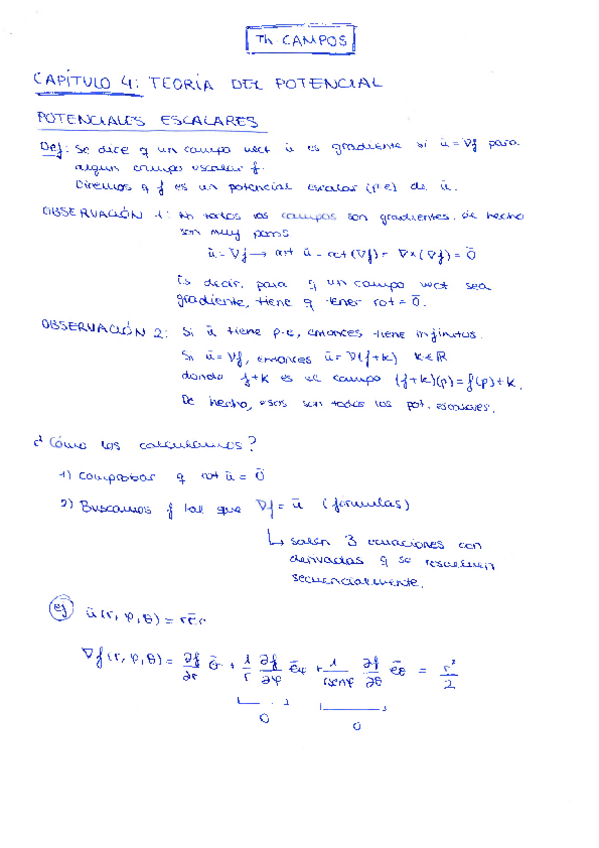 Th CAMPOS
CAPÍTULO 4: TEORÍA DEL POTENCIAL
POTENCIALES ESCALARES
Def: Se dice q un campo vect ū es gradiente si ū = ∇f para
algun campo escalar f.
Diremos q f es un potencial escalar (p.e) de ū.
OBSERVACIÓN 1: No todos los campos son gradientes. De hecho
son muy pocos
ū = ∇f → rot ū = rot (∇f) = ∇x(∇f) = 0̄
Es decir, para q un campo vect sea
gradiente, tiene q tener rot = 0̄.
OBSERVACIÓN 2: Si ū tiene p.e, entonces tiene infinitos.
Si ū = ∇f, entonces ū = ∇(f+k) k∈ℝ
donde f+k es el campo (f+k)(p) = f(p)+k.
De hecho, esos son todos los pot. escalares.
¿Cómo los calculamos?
1) Comprobar q rot ū = 0̄
2) Buscamos f tal que ∇f = ū (formulas)
↳ salen 3 ecuaciones con
derivadas q se resuelven
secuencialmente.
ej ū(r, φ, θ) = r ēr
∇f(r, φ, θ) = ∂f/∂r ē + 1/r ∂f/∂φ ēφ + 1/rsenφ ∂f/∂θ ēθ = r²/2
0 0